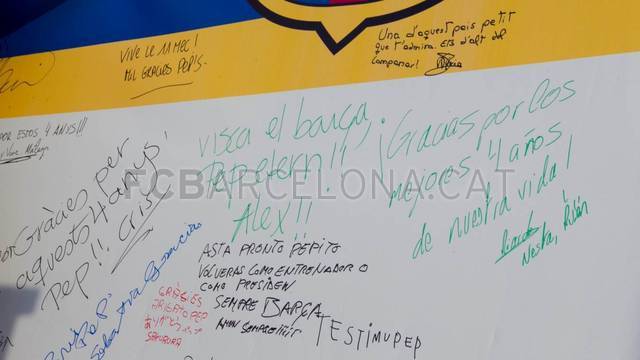 VIVE LE 11 MEC!
MIL GRÀCIES PEP!S.
Una d'aquest país petit
que t'admira. Ets d'alt del
Campanar!
POR ESTOS 4 ANYS!!!
Gràcies per
aquests 4 anys!
Pep!! Cris
visca el barça,
Pep etern!!
Alex!!
¡Gracias por los
mejores 4 años
de nuestra vida!
Neska, Rubén
FCBARCELONA.CAT
ASTA PRONTO PEPITO
VOLVERAS COMO ENTRENADOR O
COMO PRESIDEN
SEMPRE BARÇA
TESTIMUPEP
GRÀCIES
ARIGATO PEP
SAKURA